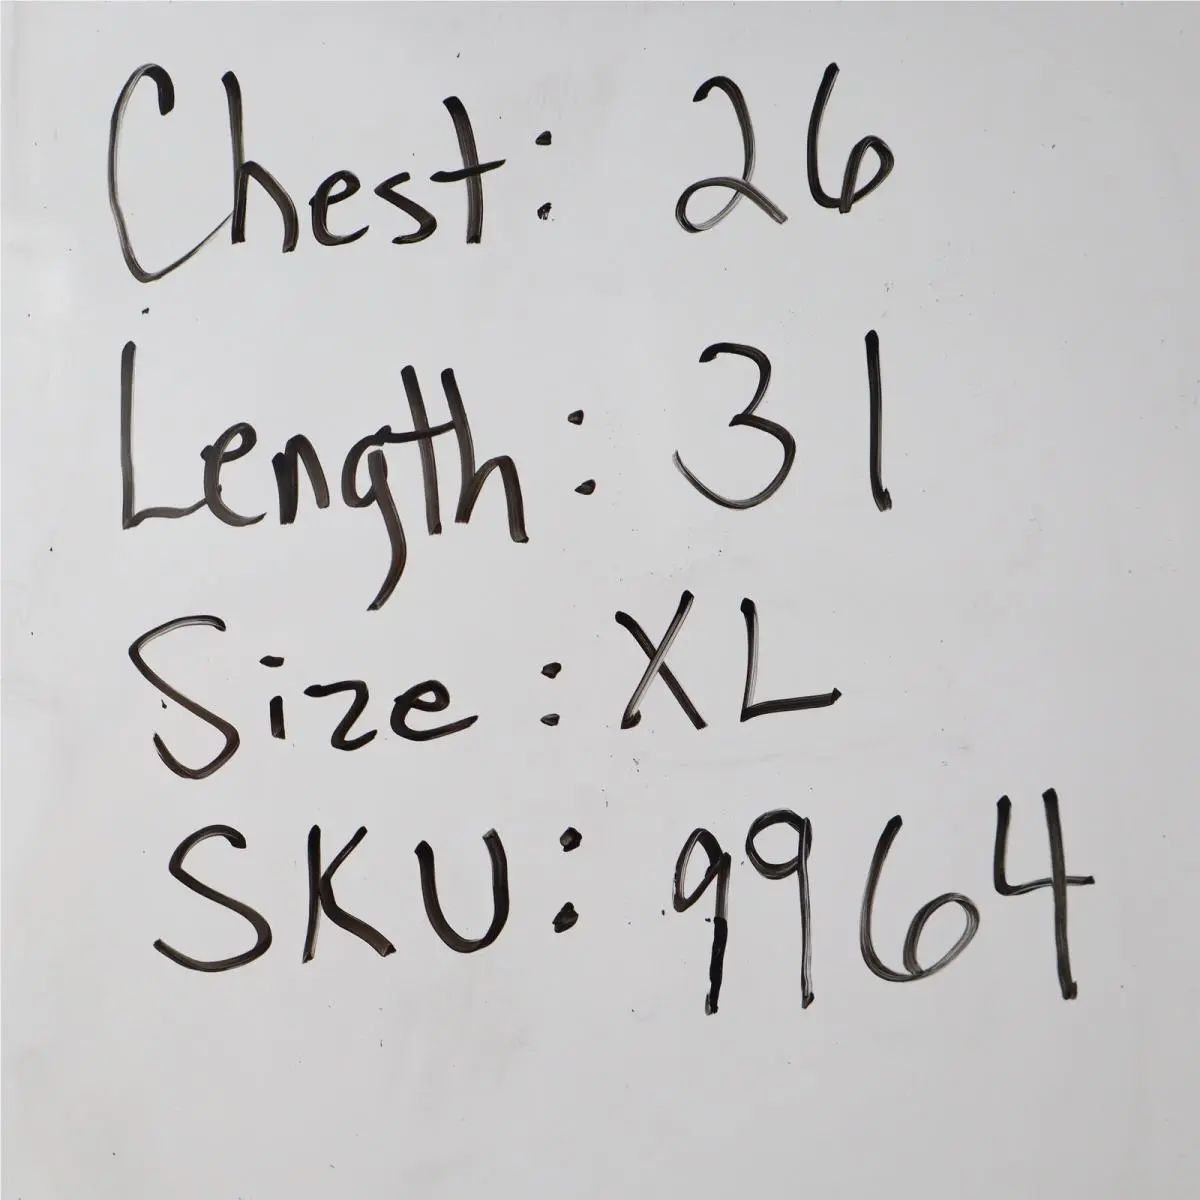 Chest: 26
Length: 31
Size: XL
SKU: 9964